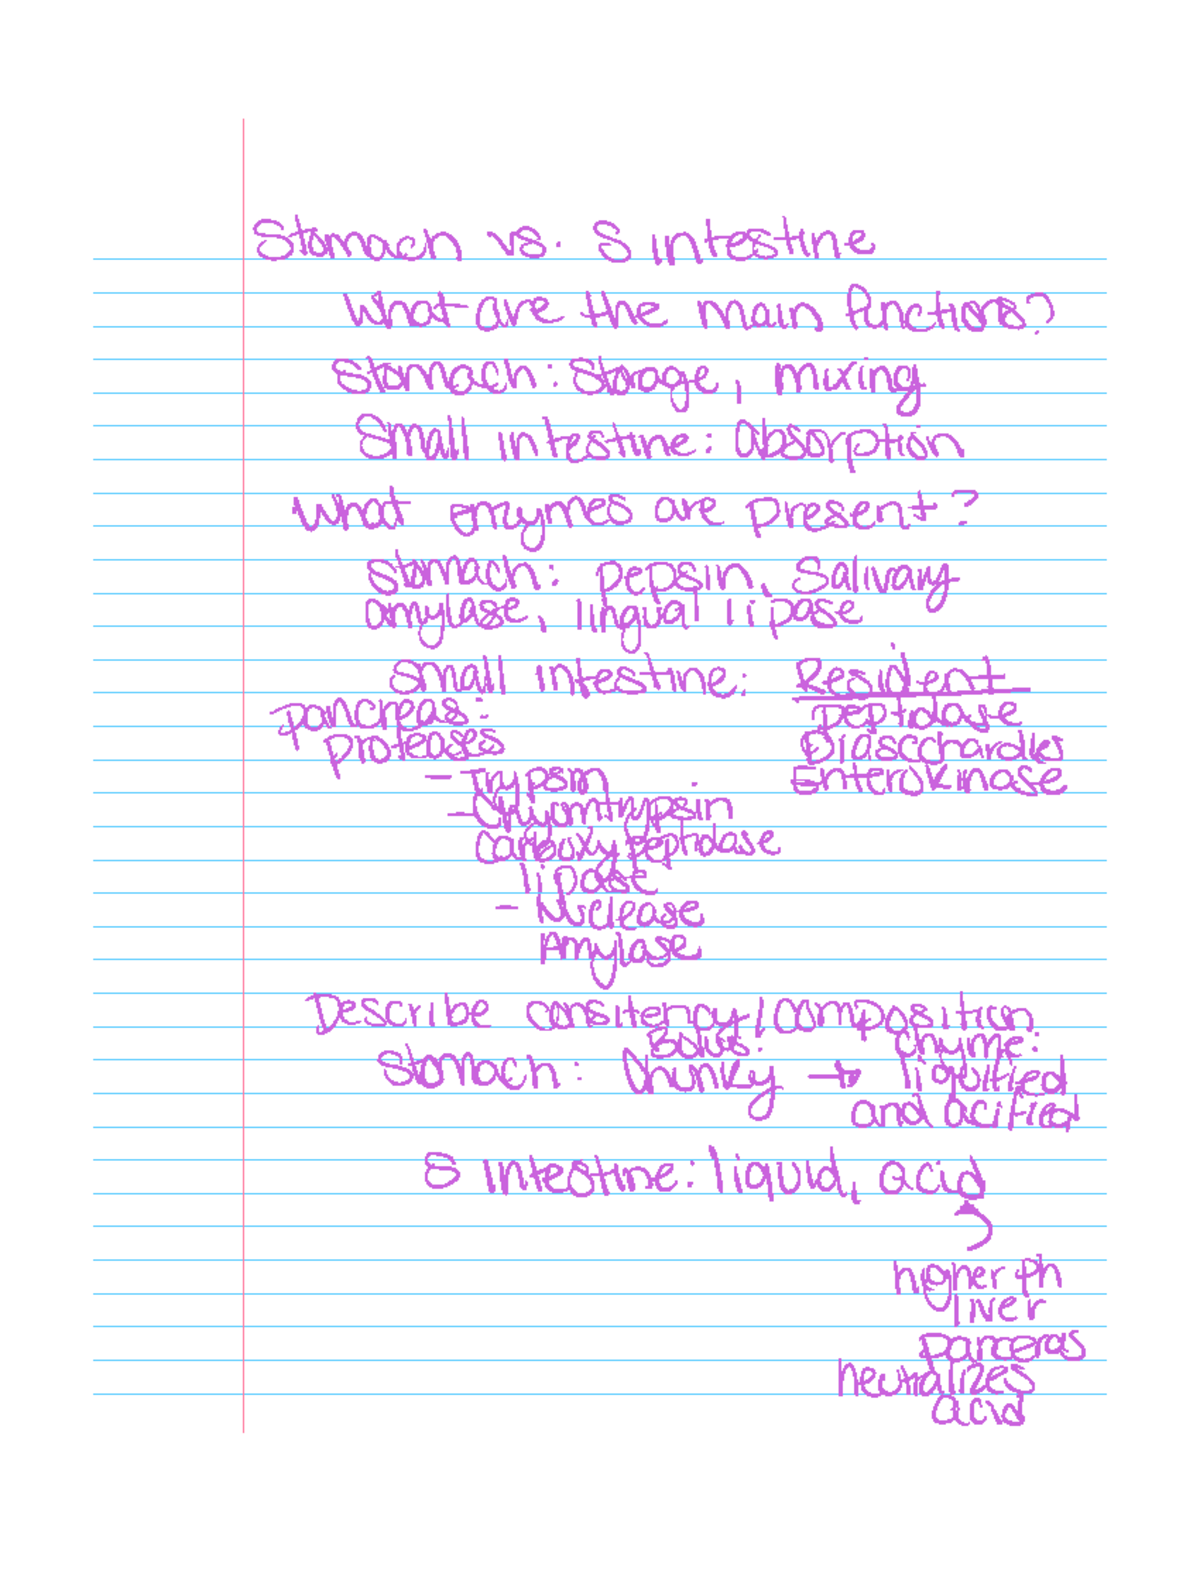 Stomach vs. S intestine
What are the main functions?
Stomach: Storage, mixing
Small intestine: absorption
What enzymes are present?
Stomach: pepsin, Salivary
amylase, lingual lipase
small intestine: Resident
pancreas: peptidase
proteases Diascchardies
- Trypsin Enterokinase
- Chyomtrypsin
carboxypeptidase
lipase
- Nuclease
Amylase
Describe consitency/composition
Bolus: Chyme:
Stomach: Chunky → liquified
and acified
S intestine: liquid, acid
higher ph
liver
panceras
neutralizes
acid